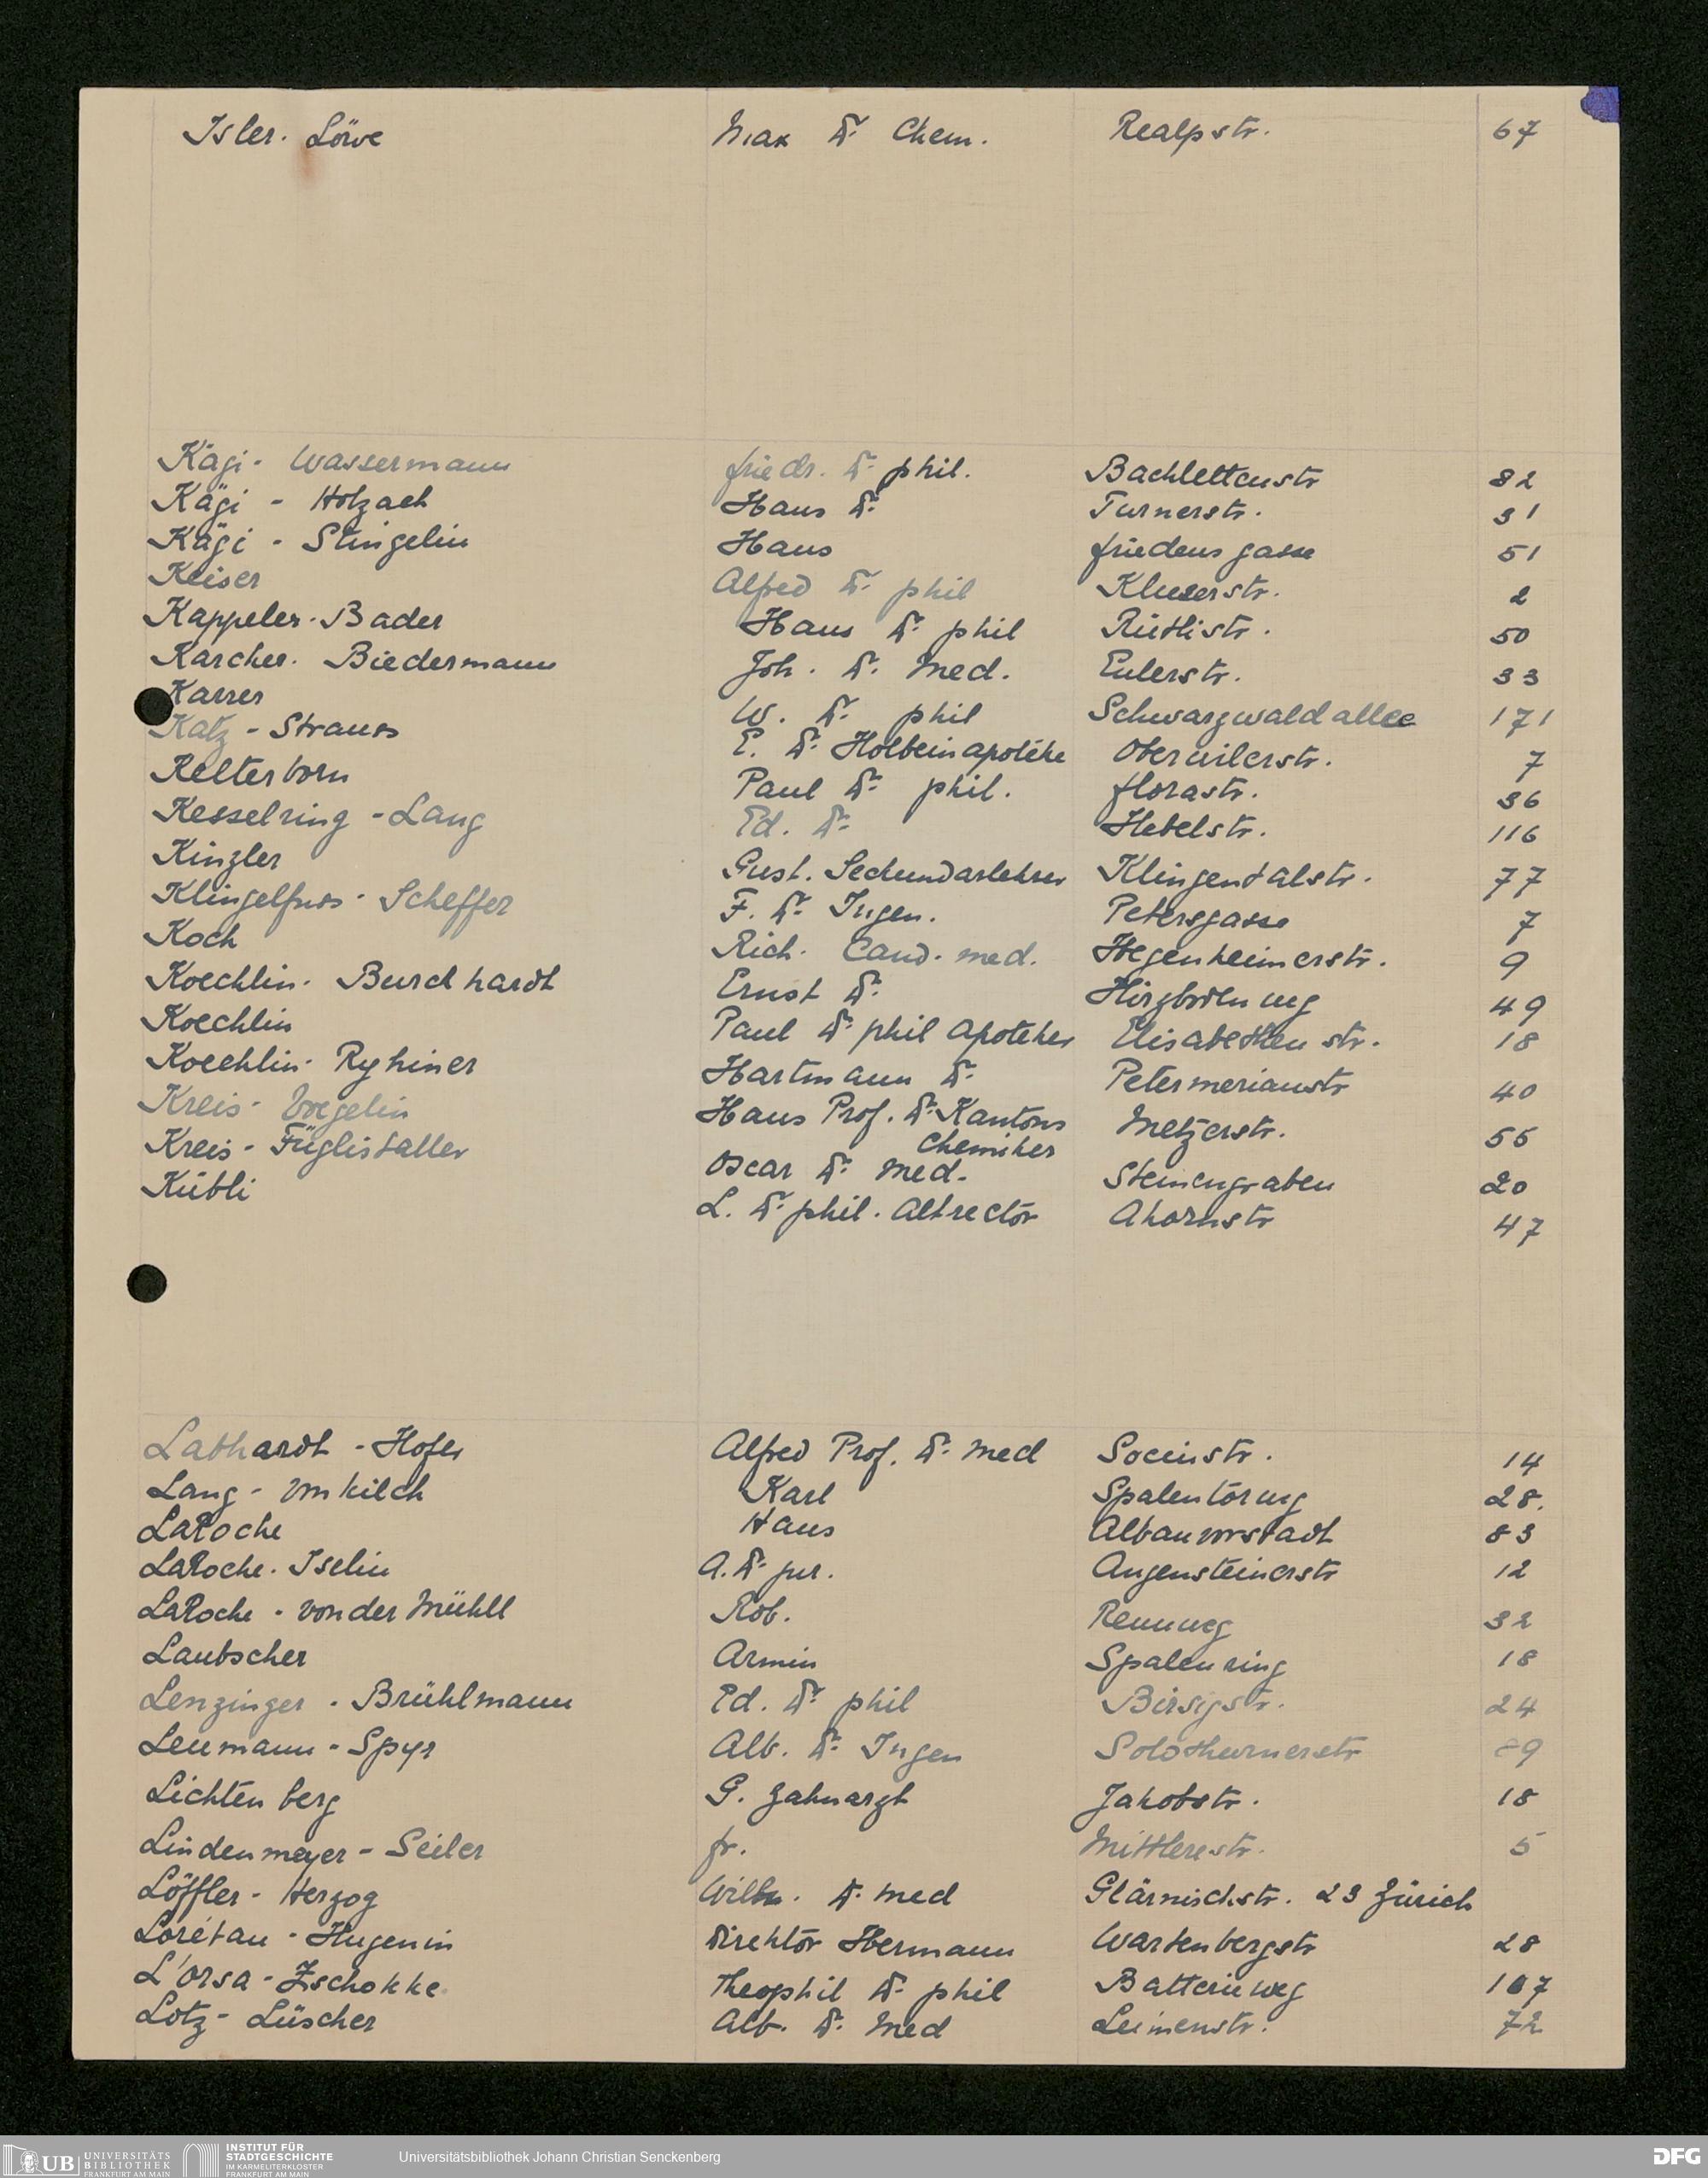 Isler. Löwe Max Dr. Chem. Realpstr. 67
Kägi - Wassermann Friedr. Dr. phil. Bachlettenstr 82
Kägi - Holzach Hans Dr. Turnerstr. 31
Kägi - Stingelin Hans Friedensgasse 51
Keiser Alfred Dr. phil Kluserstr. 2
Kappeler. Bader Hans Dr. phil Rütlistr. 50
Karcher. Biedermann Joh. Dr. Med. Eulerstr. 33
Karrer W. Dr. phil Schwarzwaldallee 171
Katz - Strauss E. Dr. Holbeinapotheke Oberwilerstr. 7
Kelterborn Paul Dr. phil. Florastr. 36
Kesselring - Lang Ed. Dr. Hebelstr. 116
Kinzler Gust. Secundarlehrer Klingentalstr. 77
Klingelfuss - Scheffer F. Dr. Ingen. Petersgasse 7
Koch Rich. Cand. med. Hegenheimerstr. 9
Koechlin. Burckhardt Ernst Dr. Hirzbodenweg 49
Koechlin Paul Dr. phil Apoteker Elisabethenstr. 18
Koechlin. Ryhiner Hartmann Dr. Petermerianstr 40
Kreis - Voegelin Hans Prof. Dr. Kantons Metzerstr. 55
Chemiker
Kreis - Füglistaller Oscar Dr. Med. Steinengraben 20
Kübli L. Dr. phil. Altrector Ahornstr 47
Labhardt - Hofer Alfred Prof. Dr. Med Socinstr. 14
Lang - Vonkilch Karl Spalentorweg 28.
LaRoche Hans Albanvorstadt 83
LaRoche. Iselin A. Dr. jur. Angensteinerstr 12
LaRoche - Von der Mühll Rob. Rennweg 32
Laubscher Armin Spalenring 18
Lenzinger - Brühlmann Ed. Dr. phil Birsigstr. 24
Leumann - Spyr Alb. Dr. Ingen Solothurnerstr 89
Lichtenberg G. Zahnarzt Jakobstr. 18
Lindenmeyer - Seiler Fr. Mittlerestr. 5
Löffler - Herzog Wilh. Dr. Med Glärnischstr. 23 Zürich
Lorétan - Hugenin Direktor Hermann Wartenbergstr 28
L'Orsa - Zschokke Theophil Dr. phil Batterieweg 107
Lotz - Lüscher Alb. Dr. Med Leimenstr. 72
UB UNIVERSITÄTS
BIBLIOTHEK
FRANKFURT AM MAIN
INSTITUT FÜR
STADTGESCHICHTE
IM KARMELITERKLOSTER
FRANKFURT AM MAIN
Universitätsbibliothek Johann Christian Senckenberg
DFG